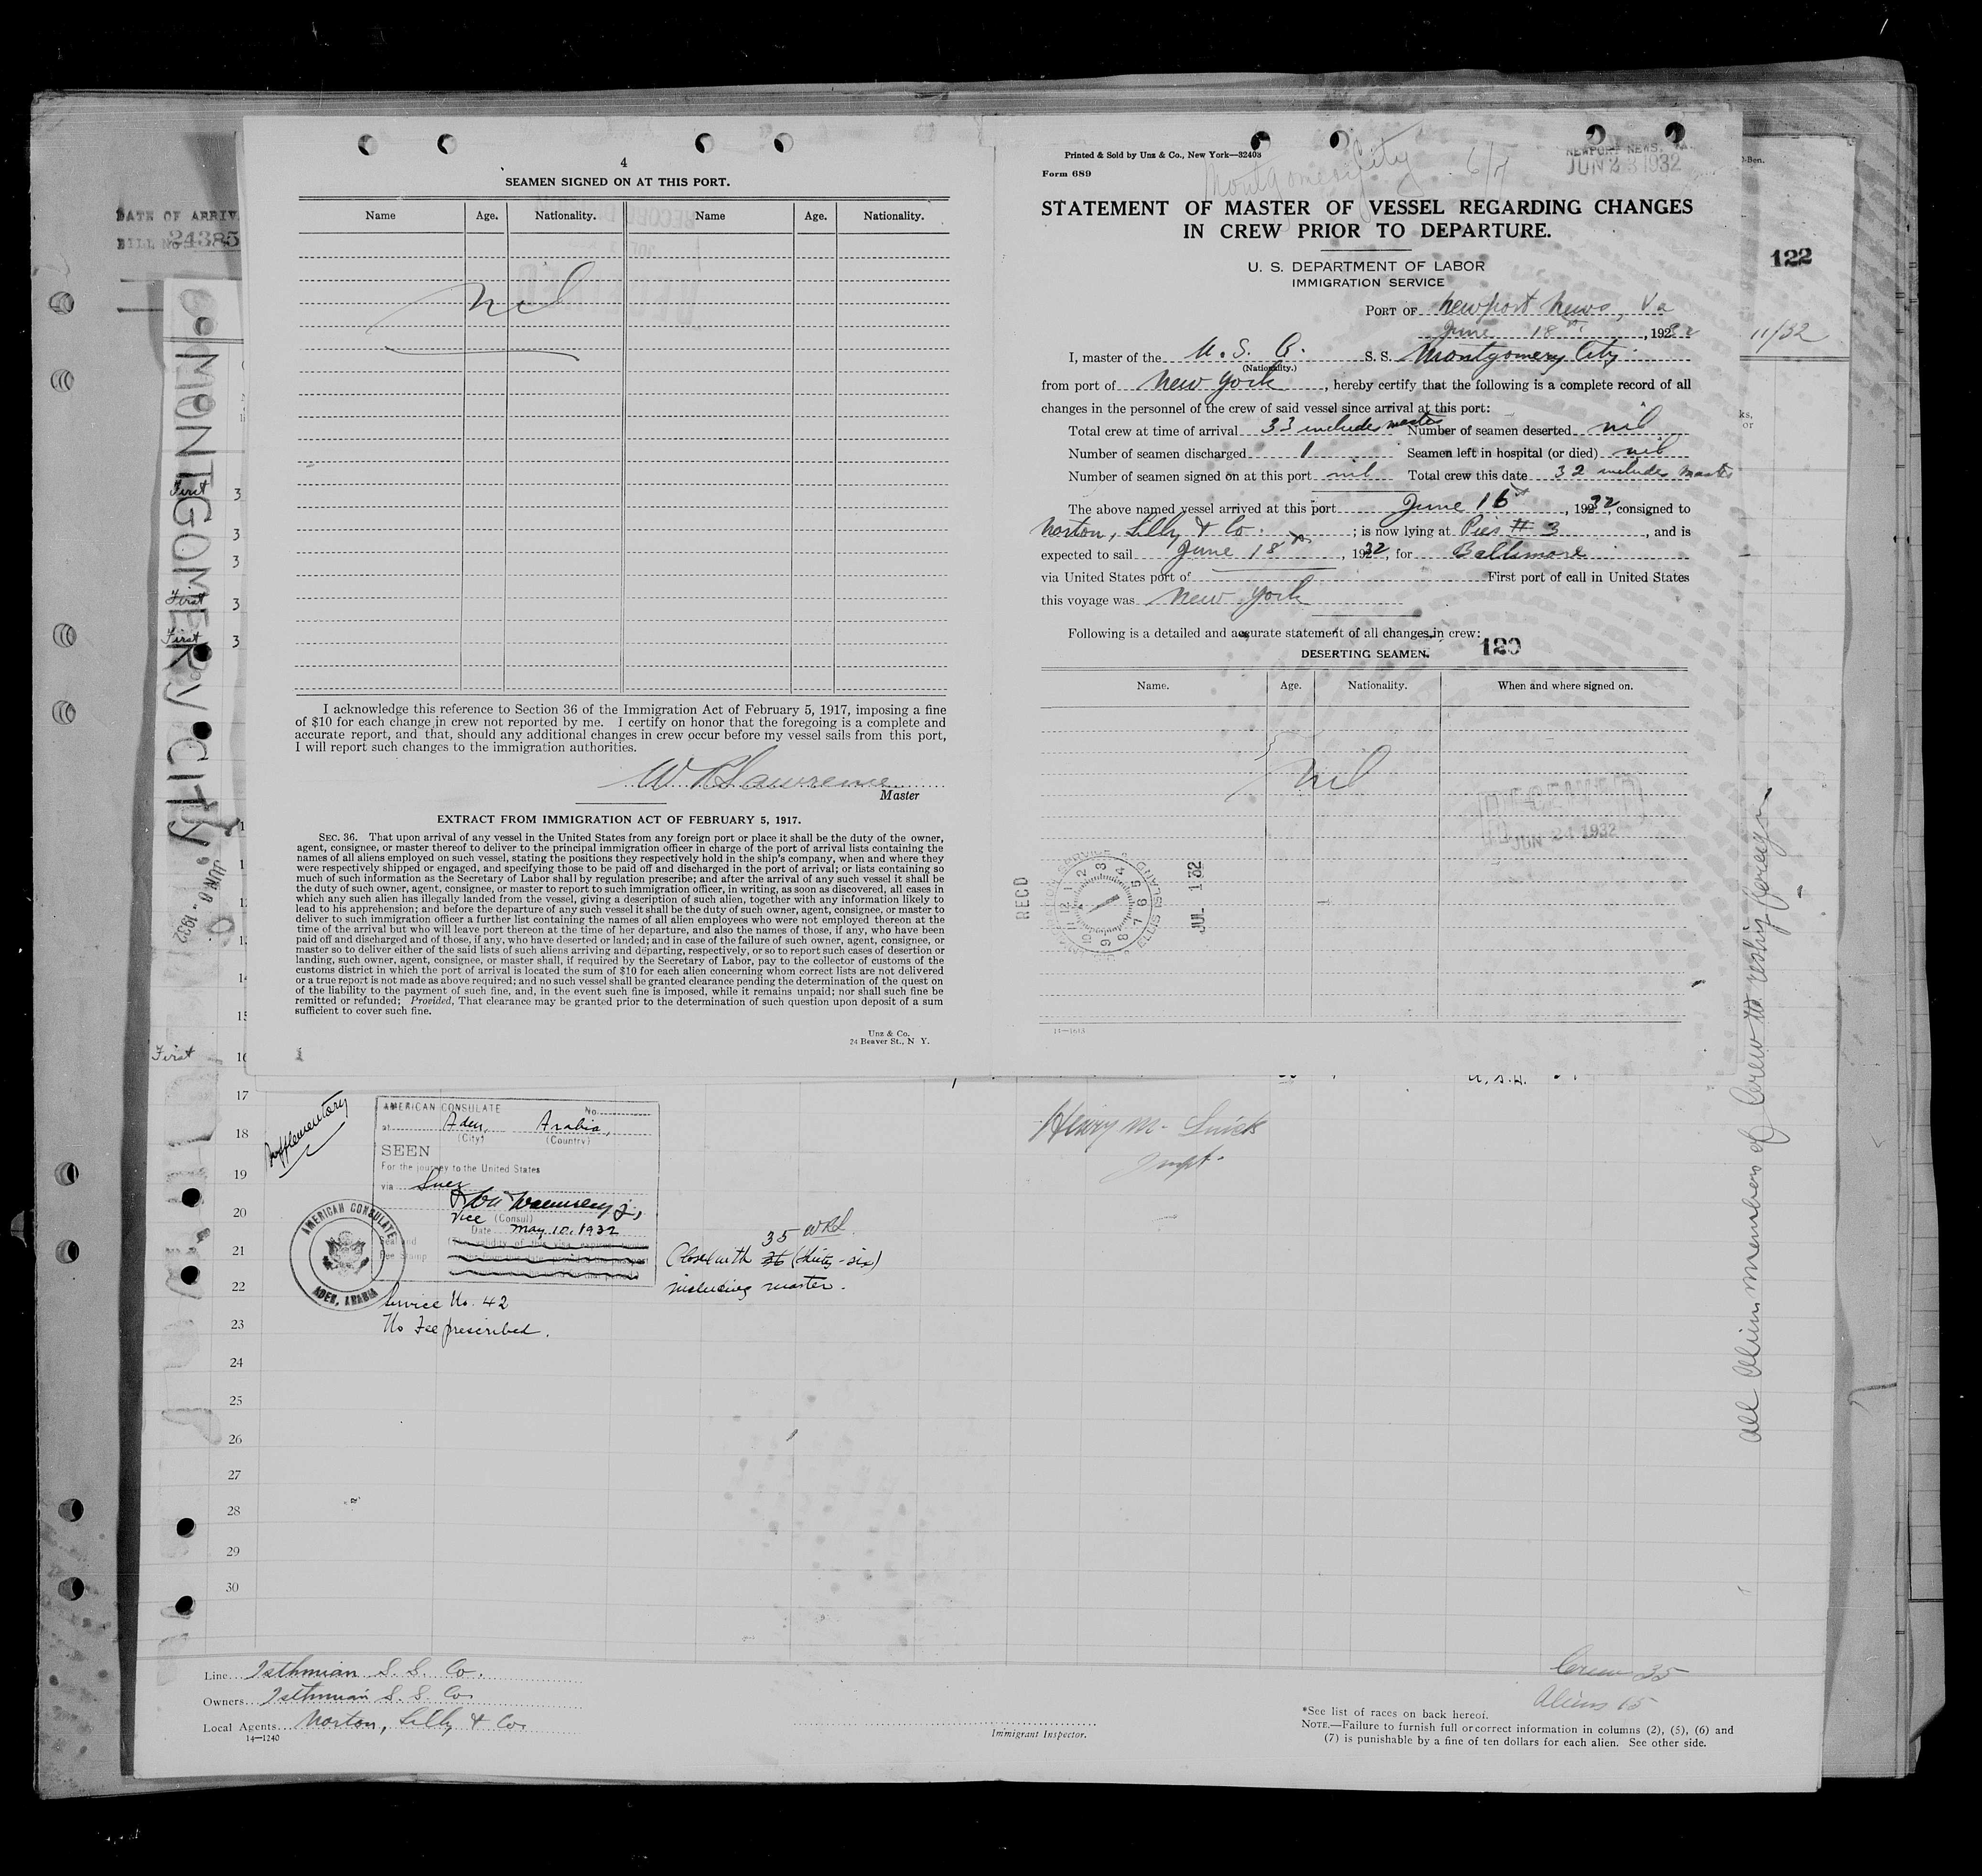 4
SEAMEN SIGNED ON AT THIS PORT.
Name Age. Nationality. Name Age. Nationality.
nil
I acknowledge this reference to Section 36 of the Immigration Act of February 5, 1917, imposing a fine
of $10 for each change in crew not reported by me. I certify on honor that the foregoing is a complete and
accurate report, and that, should any additional changes in crew occur before my vessel sails from this port,
I will report such changes to the immigration authorities.
Master
EXTRACT FROM IMMIGRATION ACT OF FEBRUARY 5, 1917.
SEC. 36. That upon arrival of any vessel in the United States from any foreign port or place it shall be the duty of the owner,
agent, consignee, or master thereof to deliver to the principal immigration officer in charge of the port of arrival lists containing the
names of all aliens employed on such vessel, stating the positions they respectively hold in the ship's company, when and where they
were respectively shipped or engaged, and specifying those to be paid off and discharged in the port of arrival; or lists containing so
much of such information as the Secretary of Labor shall by regulation prescribe; and after the arrival of any such vessel it shall be
the duty of such owner, agent, consignee, or master to report to such immigration officer, in writing, as soon as discovered, all cases in
which any such alien has illegally landed from the vessel, giving a description of such alien, together with any information likely to
lead to his apprehension; and before the departure of any such vessel it shall be the duty of such owner, agent, consignee, or master to
deliver to such immigration officer a further list containing the names of all alien employees who were not employed thereon at the
time of the arrival but who will leave port thereon at the time of her departure, and also the names of those, if any, who have been
paid off and discharged and of those, if any, who have deserted or landed; and in case of the failure of such owner, agent, consignee, or
master so to deliver either of the said lists of such aliens arriving and departing, respectively, or so to report such cases of desertion or
landing, such owner, agent, consignee, or master shall, if required by the Secretary of Labor, pay to the collector of customs of the
customs district in which the port of arrival is located the sum of $10 for each alien concerning whom correct lists are not delivered
or a true report is not made as above required; and no such vessel shall be granted clearance pending the determination of the quest on
of the liability to the payment of such fine, and, in the event such fine is imposed, while it remains unpaid; nor shall such fine be
remitted or refunded; Provided, That clearance may be granted prior to the determination of such question upon deposit of a sum
sufficient to cover such fine.
Unz & Co.
24 Beaver St., N Y.
Printed & Sold by Unz & Co., New York—32403
Form 689
Montgomery City 6/7
NEWPORT NEWS, VA.
JUN 23 1932
STATEMENT OF MASTER OF VESSEL REGARDING CHANGES
IN CREW PRIOR TO DEPARTURE.
U. S. DEPARTMENT OF LABOR
IMMIGRATION SERVICE
PORT OF Newport News, Va
June 18th, 1932
I, master of the U. S. A. S. S. Montgomery City
(Nationality.)
from port of New York, hereby certify that the following is a complete record of all
changes in the personnel of the crew of said vessel since arrival at this port:
Total crew at time of arrival 33 includes master Number of seamen deserted nil
Number of seamen discharged 1 Seamen left in hospital (or died) nil
Number of seamen signed on at this port nil Total crew this date 32 includes master
The above named vessel arrived at this port June 16, 1932, consigned to
Norton, Lilly & Co.; is now lying at Pier # 3, and is
expected to sail June 18th, 1932, for Baltimore
via United States port of First port of call in United States
this voyage was New York
Following is a detailed and accurate statement of all changes in crew:
DESERTING SEAMEN. 120
Name. Age. Nationality. When and where signed on.
nil
RECEIVED
JUN 24 1932
RECD
ELLIS ISLAND
JUL 1 32
14—1613
DATE OF ARRIV
BILL No. 24385
MONTGOMERY CITY
JUN 6 - 1932
122
11/32
First 3
3
3
First 3
First 3
14
15
First 16
17
18
19
20
21
22
23
24
25
26
27
28
29
30
U.S.A.
Supplementary
AMERICAN CONSULATE No.
at Aden, Arabia,
(City) (Country)
SEEN
For the journey to the United States
via Suez
Vice (Consul)
Date May 10, 1932
AMERICAN CONSULATE
ADEN, ARABIA
Service No. 42
No Fee prescribed.
35 WRL
Closed with 36 (thirty-six)
including master.
Inspt.
All Alien members of Crew reship foreign
Line Isthmian S. S. Co.
Owners Isthmian S. S. Co.
Local Agents Norton, Lilly & Co.
14—1240
Immigrant Inspector.
Crew 35
Aliens 15
*See list of races on back hereof.
NOTE.—Failure to furnish full or correct information in columns (2), (5), (6) and
(7) is punishable by a fine of ten dollars for each alien. See other side.